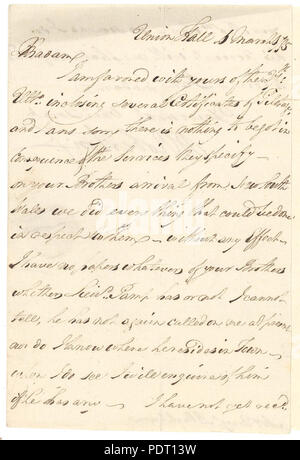 Union Hall 5 March 1795
Madam
I am favored with yours of the 28th
Ulto. inclosing several Certificates of Piloting
and I am sorry there is nothing to be got in
Consequence of the Services they specify —
on your Brothers arrival from New South
Wales we did every thing that could be done
in respect to them — without any Effect —
I have no papers whatever of your Brothers
whether Lieut. Kemp has or not I cannot
tell, he has not again called on me at present
nor do I know where he resides in Town —
when I do see I will enquire of him
if he has any — I have not yet recd.
alamy
PDT13W